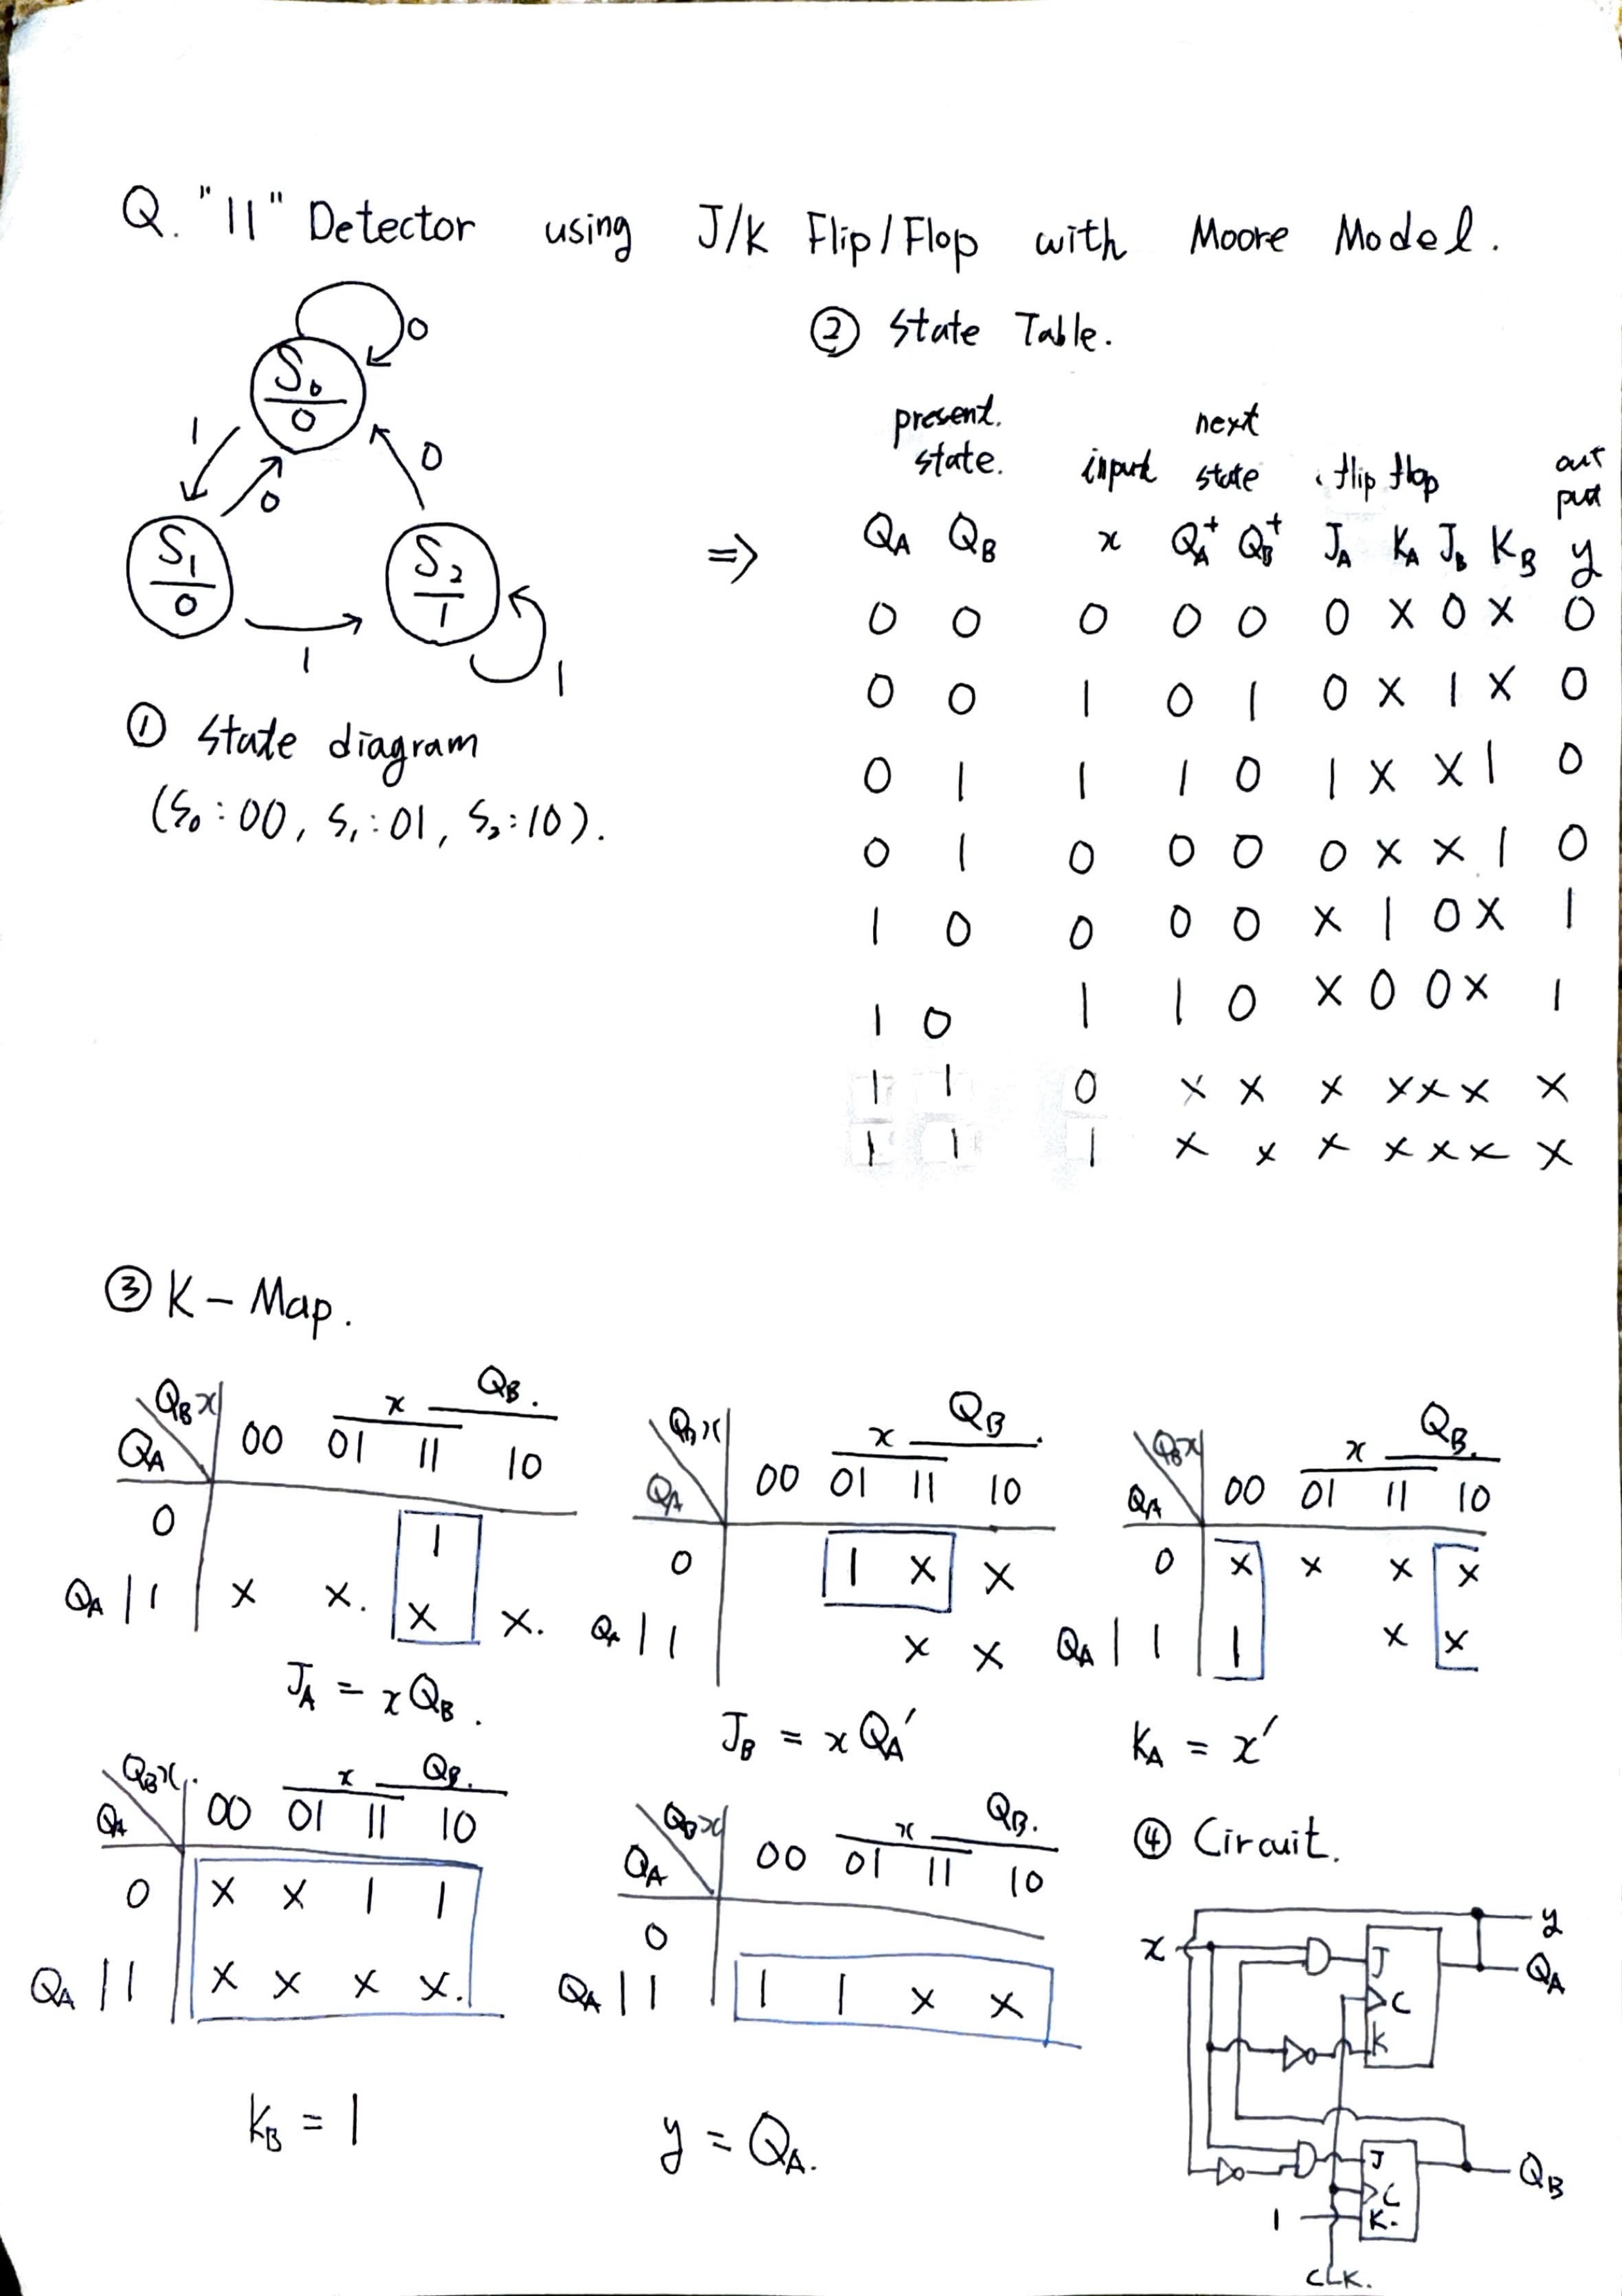 Q. "11" Detector using J/K Flip/Flop with Moore Model.
0
S0
0
1
0
0
S1
0
S2
1
1
1
① State diagram
(S0:00, S1:01, S2:10).
=>
② State Table.
present. next
state. input state flip flop out put
QA QB x QA+ QB+ JA KA JB KB y
0 0 0 0 0 0 X 0 X 0
0 0 1 0 1 0 X 1 X 0
0 1 1 1 0 1 X X 1 0
0 1 0 0 0 0 X X 1 0
1 0 0 0 0 X 1 0 X 1
1 0 1 1 0 X 0 0 X 1
1 1 0 X X X X X X X
1 1 1 X X X X X X X
③ K-Map.
x QB.
QBx
QA 00 01 11 10
0 1
QA | 1 X X. X X.
JA = xQB.
x QB.
QBx
QA 00 01 11 10
0 1 X X
QA | 1 X X
JB = xQA'
x QB.
QBx
QA 00 01 11 10
0 X X X X
QA | 1 1 X X
KA = x'
x QB.
QBx.
QA 00 01 11 10
0 X X 1 1
QA | 1 X X X X.
KB = 1
x QB.
QBx
QA 00 01 11 10
0
QA | 1 1 1 X X
y = QA.
④ Circuit.
y
x J QA
C
K
J QB
C
1 K.
CLK.